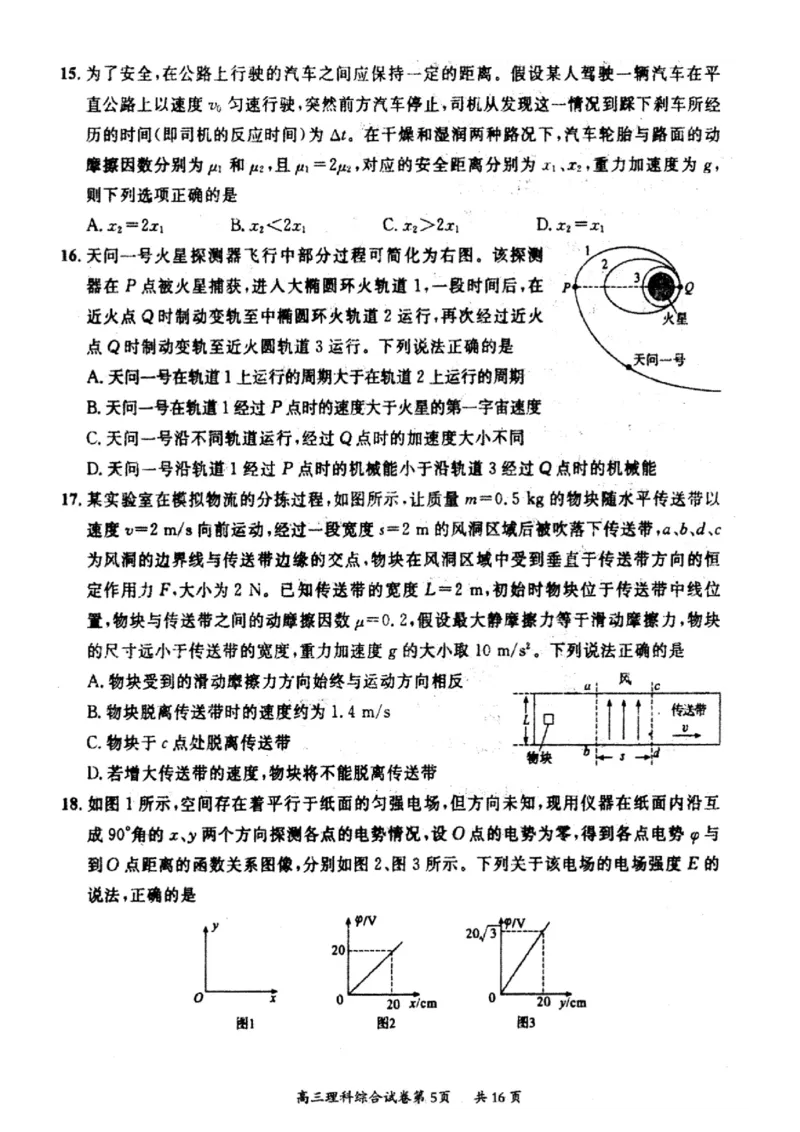 15. 为了安全,在公路上行驶的汽车之间应保持一定的距离。假设某人驾驶一辆汽车在平
直公路上以速度 v₀ 匀速行驶,突然前方汽车停止,司机从发现这一情况到踩下刹车所经
历的时间(即司机的反应时间)为 Δt。在干燥和湿润两种路况下,汽车轮胎与路面的动
摩擦因数分别为 μ₁ 和 μ₂,且 μ₁=2μ₂,对应的安全距离分别为 x₁、x₂,重力加速度为 g,
则下列选项正确的是
A. x₂=2x₁ B. x₂<2x₁ C. x₂>2x₁ D. x₂=x₁
16. 天问一号火星探测器飞行中部分过程可简化为右图。该探测
器在 P 点被火星捕获,进入大椭圆环火轨道 1,一段时间后,在
近火点 Q 时制动变轨至中椭圆环火轨道 2 运行,再次经过近火
点 Q 时制动变轨至近火圆轨道 3 运行。下列说法正确的是
A. 天问一号在轨道 1 上运行的周期大于在轨道 2 上运行的周期
B. 天问一号在轨道 1 经过 P 点时的速度大于火星的第一宇宙速度
C. 天问一号沿不同轨道运行,经过 Q 点时的加速度大小不同
D. 天问一号沿轨道 1 经过 P 点时的机械能小于沿轨道 3 经过 Q 点时的机械能
1
2
3
P
Q
火星
天问一号
17. 某实验室在模拟物流的分拣过程,如图所示,让质量 m=0.5 kg 的物块随水平传送带以
速度 v=2 m/s 向前运动,经过一段宽度 s=2 m 的风洞区域后被吹落下传送带,a、b、d、c
为风洞的边界线与传送带边缘的交点,物块在风洞区域中受到垂直于传送带方向的恒
定作用力 F,大小为 2 N。已知传送带的宽度 L=2 m,初始时物块位于传送带中线位
置,物块与传送带之间的动摩擦因数 μ=0.2,假设最大静摩擦力等于滑动摩擦力,物块
的尺寸远小于传送带的宽度,重力加速度 g 的大小取 10 m/s²。下列说法正确的是
A. 物块受到的滑动摩擦力方向始终与运动方向相反
B. 物块脱离传送带时的速度约为 1.4 m/s
C. 物块于 c 点处脱离传送带
D. 若增大传送带的速度,物块将不能脱离传送带
a 风 c
L 传送带
v
物块 b s d
18. 如图 1 所示,空间存在着平行于纸面的匀强电场,但方向未知,现用仪器在纸面内沿互
成 90°角的 x、y 两个方向探测各点的电势情况,设 O 点的电势为零,得到各点电势 φ 与
到 O 点距离的函数关系图像,分别如图 2、图 3 所示。下列关于该电场的电场强度 E 的
说法,正确的是
y
O x
图1
φ/V
20
0 20 x/cm
图2
φ/V
20√3
0 20 y/cm
图3
高三理科综合试卷第 5页 共 16 页